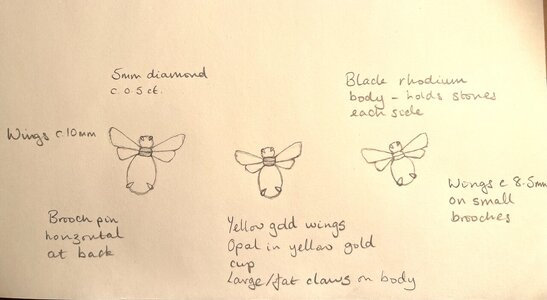 5mm diamond
c 0.5ct.
Black rhodium
body - holds stones
each side
Wings c.10mm
Wings c 8.5mm
on small
brooches
Brooch pin
horizontal
at back
Yellow gold wings
Opal in yellow gold
cup
Large/fat claws on body